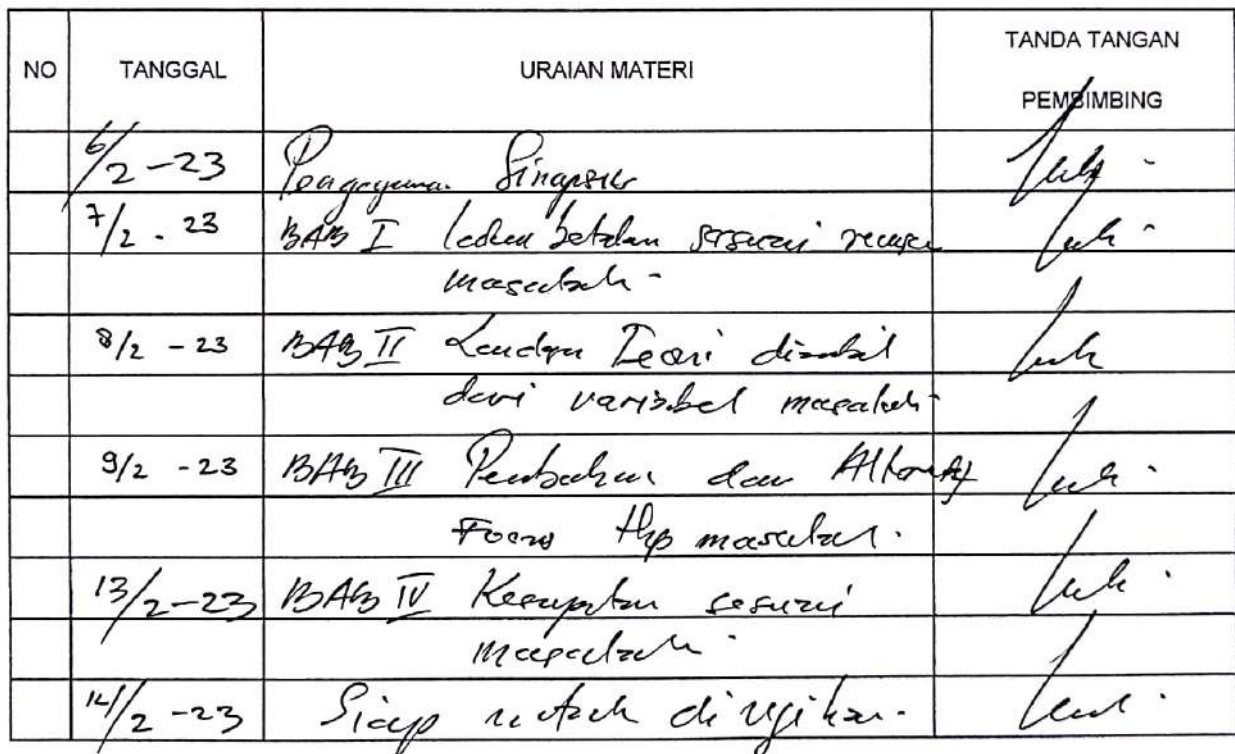 NO TANGGAL URAIAN MATERI TANDA TANGAN PEMBIMBING
6/2 -23 Sinopsis
7/2 - 23 BAB I sesuai
masalah -
8/2 - 23 BAB II Landasan Teori diambil
dari variabel masalah -
9/2 - 23 BAB III Pembahasan dan Alternatif
Focus thp masalah.
13/2 -23 BAB IV Kesimpulan sesuai
masalah.
14/2 -23 Siap untuk diujikan.